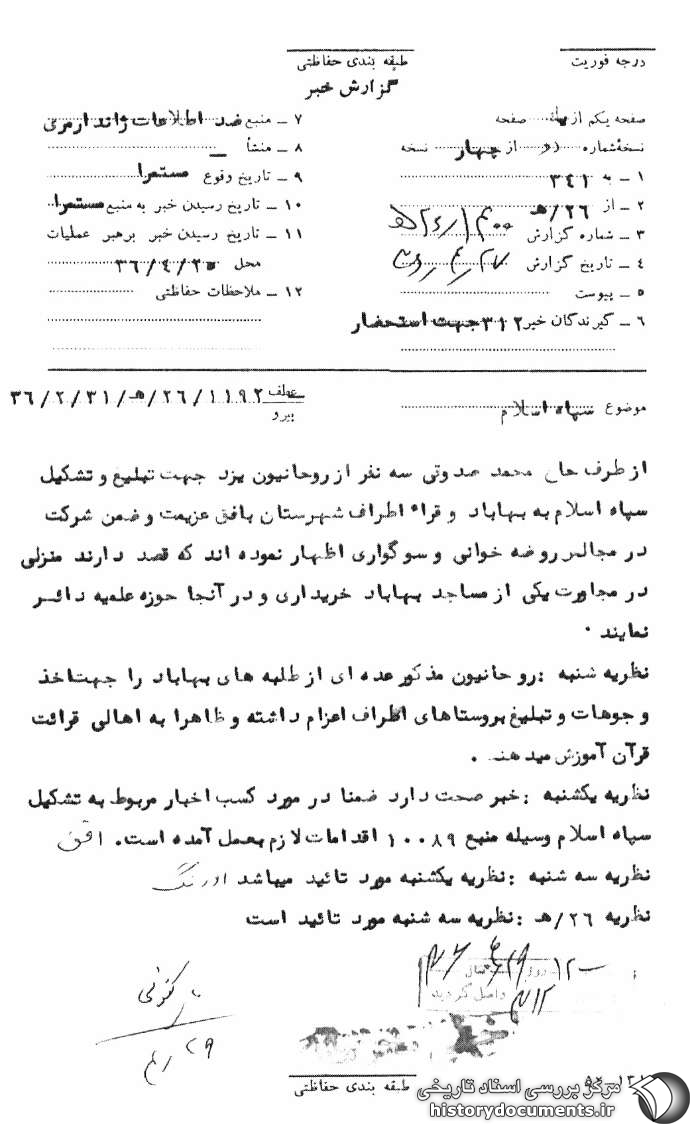 درجه فوریت
طبقه بندی حفاظتی
گزارش خبر
صفحه یکم از یک صفحه
نسخه شماره از چهار نسخه
۱ ــ به ۳۴۱
۲ ــ از ۲۶/هـ
۳ ــ شماره گزارش
۴ ــ تاریخ گزارش
۵ ــ پیوست
۶ ــ گیرندگان خبر ۳۱۲ جهت استحضار
۷ ــ منبع ضد اطلاعات ژاندارمری
۸ ــ منشأ ــ
۹ ــ تاریخ وقوع مستمرا
۱۰ ــ تاریخ رسیدن خبر به منبع مستمرا
۱۱ ــ تاریخ رسیدن خبر برهبر عملیات
محل ۳۶/۴/۲۵
۱۲ ــ ملاحظات حفاظتی
موضوع سپاه اسلام
عطف ۱۱۹۲/۲۶/هـ/۳۶/۲/۳۱
پیرو
از طرف حاج محمد صدوتی سه نفر از روحانیون یزد جهت تبلیغ و تشکیل
سپاه اسلام به بهاباد و قراء اطراف شهرستان بافق عزیمت و ضمن شرکت
در مجالس روضه خوانی و سوگواری اظهار نموده اند که قصد دارند منزلی
در مجاورت یکی از مساجد بهاباد خریداری و در آنجا حوزه علمیه دائر
نمایند .
نظریه شنبه : روحانیون مذکور عده ای از طلبه های بهاباد را جهت اخذ
وجوهات و تبلیغ بروستاهای اطراف اعزام داشته و ظاهرا به اهالی قرائت
قرآن آموزش میدهند .
نظریه یکشنبه : خبر صحت دارد ضمنا در مورد کسب اخبار مربوط به تشکیل
سپاه اسلام وسیله منبع ۱۰۰۸۹ اقدامات لازم بعمل آمده است. افق
نظریه سه شنبه : نظریه یکشنبه مورد تائید میباشد اورنگ
نظریه ۲۶/هـ : نظریه سه شنبه مورد تائید است
واصل گردید
۲۹/۴
طبقه بندی حفاظتی
مرکز بررسی اسناد تاریخی
historydocuments.ir